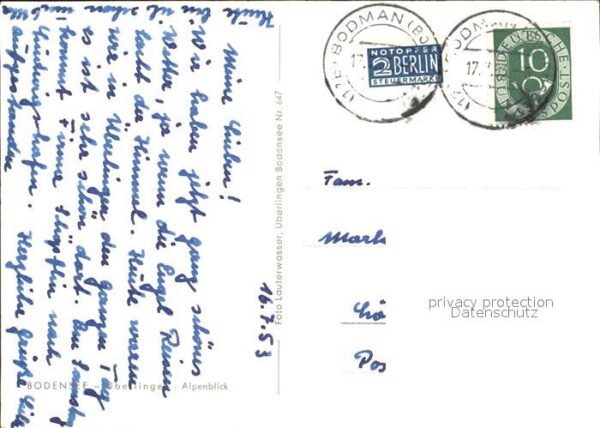 16.7.53
Meine Lieben!
Wir haben jetzt ganz schönes
Wetter, ja wenn die Engel Reisen
lacht der Himmel. Heute waren
wir in Überlingen den ganzen Tag
es ist sehr schön dort. Am Samstag
kommt Finne Schöpflin nach
Ludwigshafen. Herzliche Grüße
Heute bin ich schon
aufgestanden
BODENSEE - Überlingen - Alpenblick
Foto Lauterwasser, Überlingen Bodensee Nr. 647
BODMAN (BO
17.
NOTOPFER
2 BERLIN
STEUERMARKE
BODMAN
17.
10
DEUTSCHE POST
Fam.
Mark
Lö
Pos
privacy protection
Datenschutz